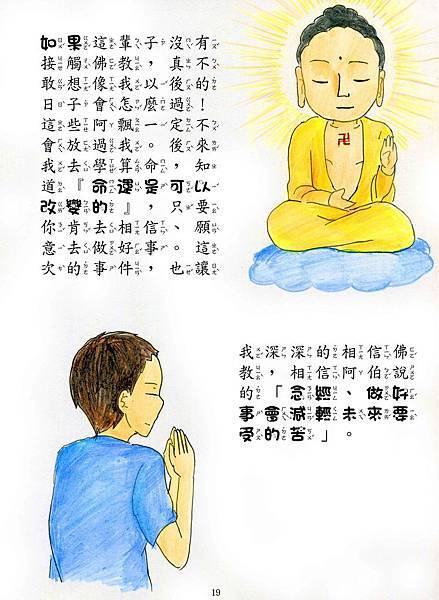 如果這輩子沒有
接觸佛教，真不
敢想像我以後的
日子會怎麼過！
這些阿飄一定不
會放過我。後來
我去學算命，知
道『命運是可以
改變的』，只要
你肯去相信、願
意去做好事。這
次的事件，也讓
卍
我深深的相信佛
教，相信阿伯說
的「念經、做好
事會減輕未來要
受的苦」。
19